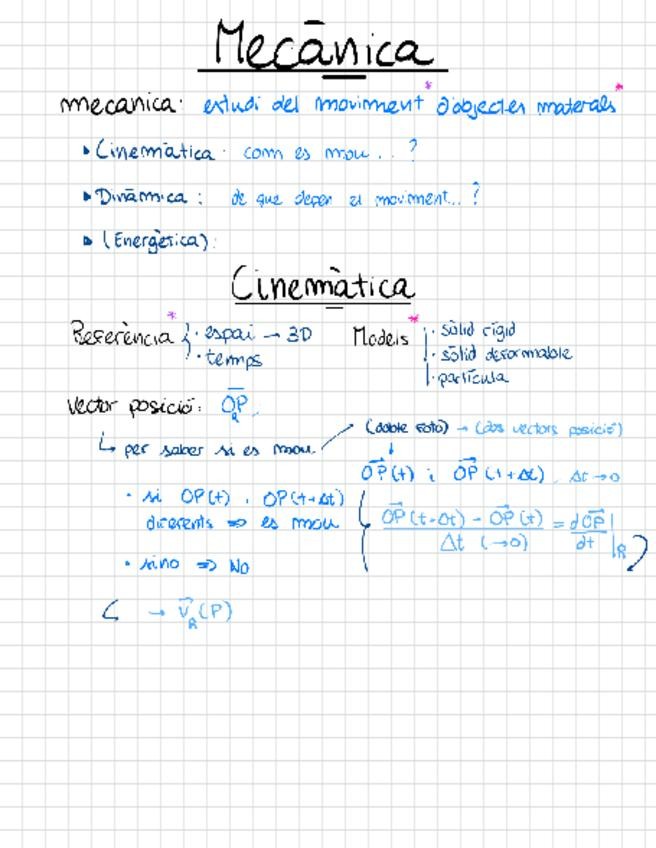 Mecānica
mecanica: estudi del moviment* d'objectes materials*
▸ Cinemàtica: com es mou...?
▸ Dinàmica: de que depen el moviment...?
▸ (Energètica):
Cinemàtica
Referència* { · espai → 3D
· temps
Models* · sòlid rígid
· sòlid deformable
· partícula
Vector posició: OP
R
↳ per saber si es mou
(doble foto) → (dos vectors posició)
↓
OP(t) i OP(t+Δt). Δt→0
· si OP(t) i OP(t+Δt)
diferents ⇒ es mou
· sino ⇒ No
OP(t+Δt) - OP(t) = dOP |
Δt (→0) dt |R
→ v (P)
R